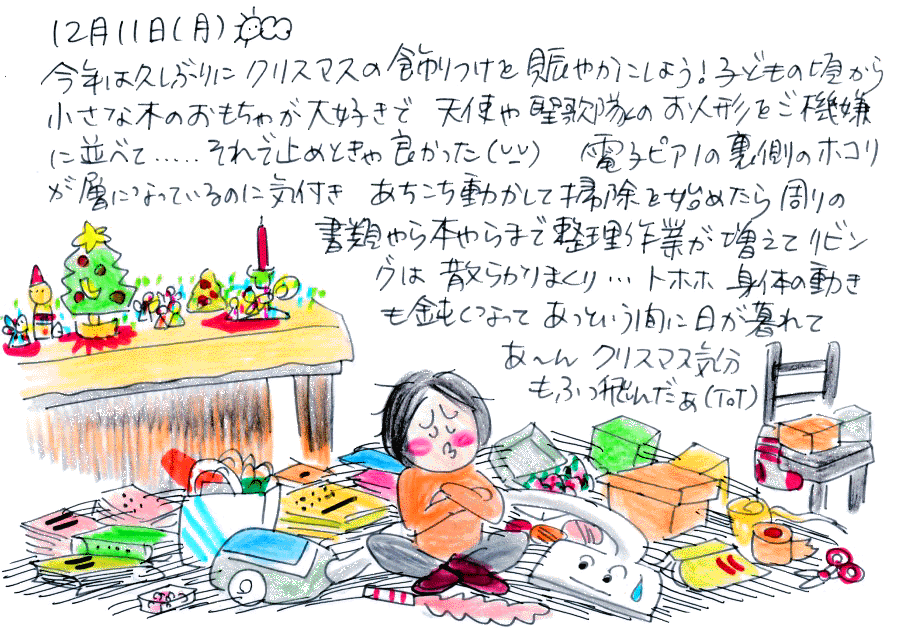 12月11日(月)
今年は久しぶりにクリスマスの飾りつけを賑やかにしよう!子どもの頃から
小さな木のおもちゃが大好きで 天使や聖歌隊のお人形をご機嫌
に並べて‥‥‥それで止めときゃ良かった(ᴗᴗ) 電子ピアノの裏側のホコリ
が層になっているのに気付き あちこち動かして掃除を始めたら周りの
書類やら本やらまで整理作業が増えてリビン
グは散らかりまくり…トホホ 身体の動き
も鈍くなって あっという間に日が暮れて
あ〜ん クリスマス気分
もふっ飛んだぁ(ToT)